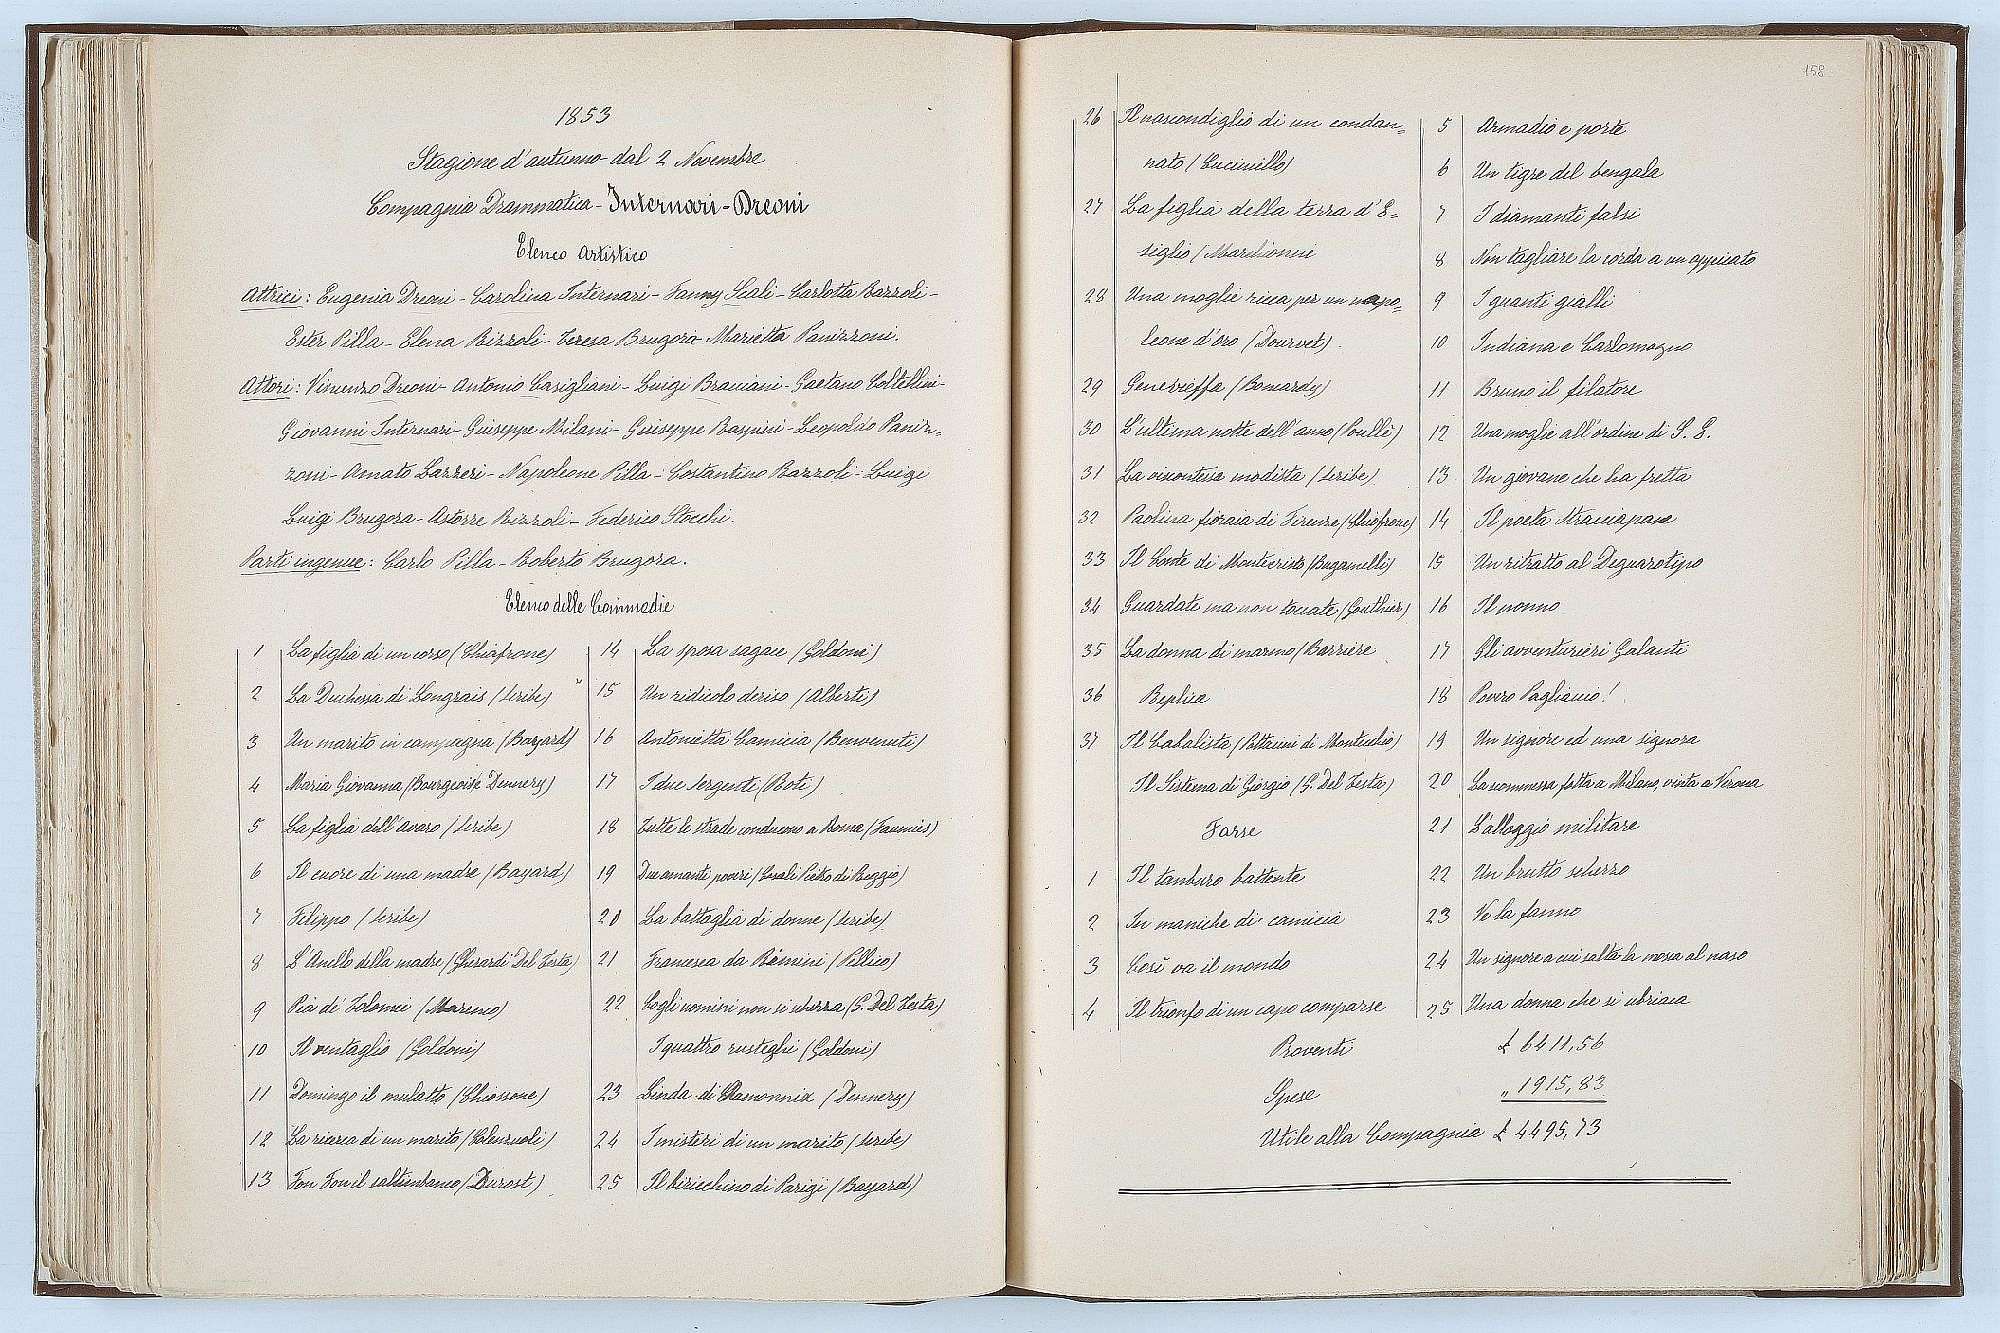 1853
Stagione d'autunno dal 2 Novembre
Compagnia Drammatica - Internari - Dreoni
Elenco Artistico
Attrici: Eugenia Dreoni - Carolina Internari - Fanny Scali - Carlotta Bazzoli -
Ester Pilla - Elena Bizzoli - Teresa Brugora - Marietta Panizzoni.
Attori: Vincenzo Dreoni - Antonio Casigliani - Luigi Braciani - Gaetano Coltellini -
Giovanni Internari - Giuseppe Milani - Giuseppe Bagnini - Leopoldo Paniz=
zoni - Amato Lazzeri - Napoleone Pilla - Costantino Bazzoli - Luigi
Luigi Brugora - Astorre Bizzoli - Federico Stocchi.
Parti ingenue: Carlo Pilla - Roberto Brugora.
Elenco delle Commedie
1 La figlia di un corso (Chiafrone)
2 La Duchessa di Longrais (Scribe)
3 Un marito in campagna (Bayard)
4 Maria Giovanna (Bourgeoise Dennery)
5 La figlia dell'avaro (Scribe)
6 Il cuore di una madre (Bayard)
7 Filippo (Scribe)
8 L'Anello della madre (Gherardi Del Testa)
9 Pia de' Tolomei (Marenco)
10 Il ventaglio (Goldoni)
11 Domingo il mulatto (Chiossone)
12 La ricerca di un marito (Colenzuoli)
13 Fon Fon il saltimbanco (Durost)
14 La sposa sagace (Goldoni)
15 Un ridicolo deriso (Alberti)
16 Antonietta Camicia (Benvenuti)
17 I due Sergenti (Roti)
18 Tutte le strade conducono a Roma (Faumies)
19 Due amanti poveri (Casali Pietro di Reggio)
20 La battaglia di donne (Scribe)
21 Francesca da Rimini (Pellico)
22 Cogli uomini non si scherza (G. Del Testa)
I quattro rusteghi (Goldoni)
23 Linda di Chamonnix (Dennery)
24 I misteri di un marito (Scribe)
25 Il biricchino di Parigi (Bayard)
158
26 Il nascondiglio di un condan=
nato (Cuciniello)
27 La figlia della terra d'E=
siglio (Marchionni
28 Una moglie ricca per un napo=
leone d'oro (Dourvet).
29 Genevieffa (Bomardy)
30 L'ultima notte dell'anno (Poullè)
31 La viscontessa modista (Scribe)
32 Paolina fioraia di Firenze (Chiafrone)
33 Il Conte di Montecristo (Bugamelli)
34 Guardate ma non toccate (Gouthier)
35 La donna di marmo (Barriere
36 Replica
37 Il Cabalista (Pottaini di Montecchio)
Il Sistema di Giorgio (G. Del Testa)
Farse
1 Il tamburo battente
2 In maniche di camicia
3 Cosi va il mondo
4 Il trionfo di un capo comparse
5 Armadio e porte
6 Un tigre del bengala
7 I diamanti falsi
8 Non tagliare la corda a un appiccato
9 I guanti gialli
10 Indiana e Carlomagno
11 Bruno il filatore
12 Una moglie all'ordine di S. E.
13 Un giovane che ha fretta
14 Il poeta Stracciapane
15 Un ritratto al Deguarotipo
16 Il nonno
17 Gli avventurieri Galanti
18 Povero Pagliaccio!
19 Un signore ed una signora
20 La scommessa fatta a Milano, vinta a Verona
21 L'alloggio militare
22 Un brutto scherzo
23 Ve la fanno
24 Un signore a cui salta la mosca al naso
25 Una donna che si ubriaca
Proventi £ 6411,56
Spese " 1915,83
Utile alla Compagnia £ 4495,73